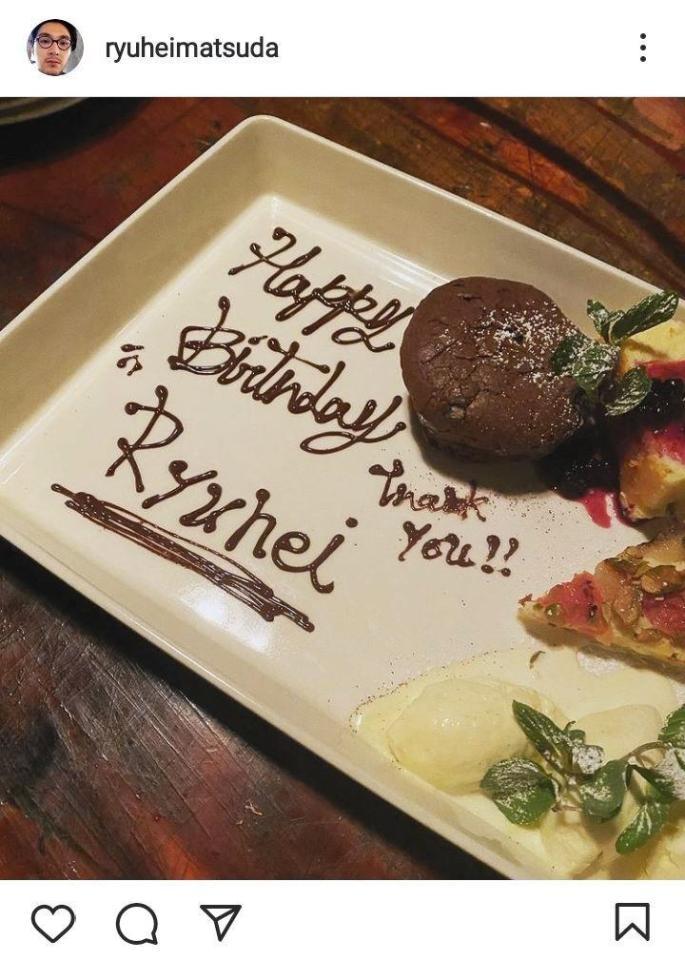 ryuheimatsuda
Happy
Birthday
Ryuhei
Thank
You!!